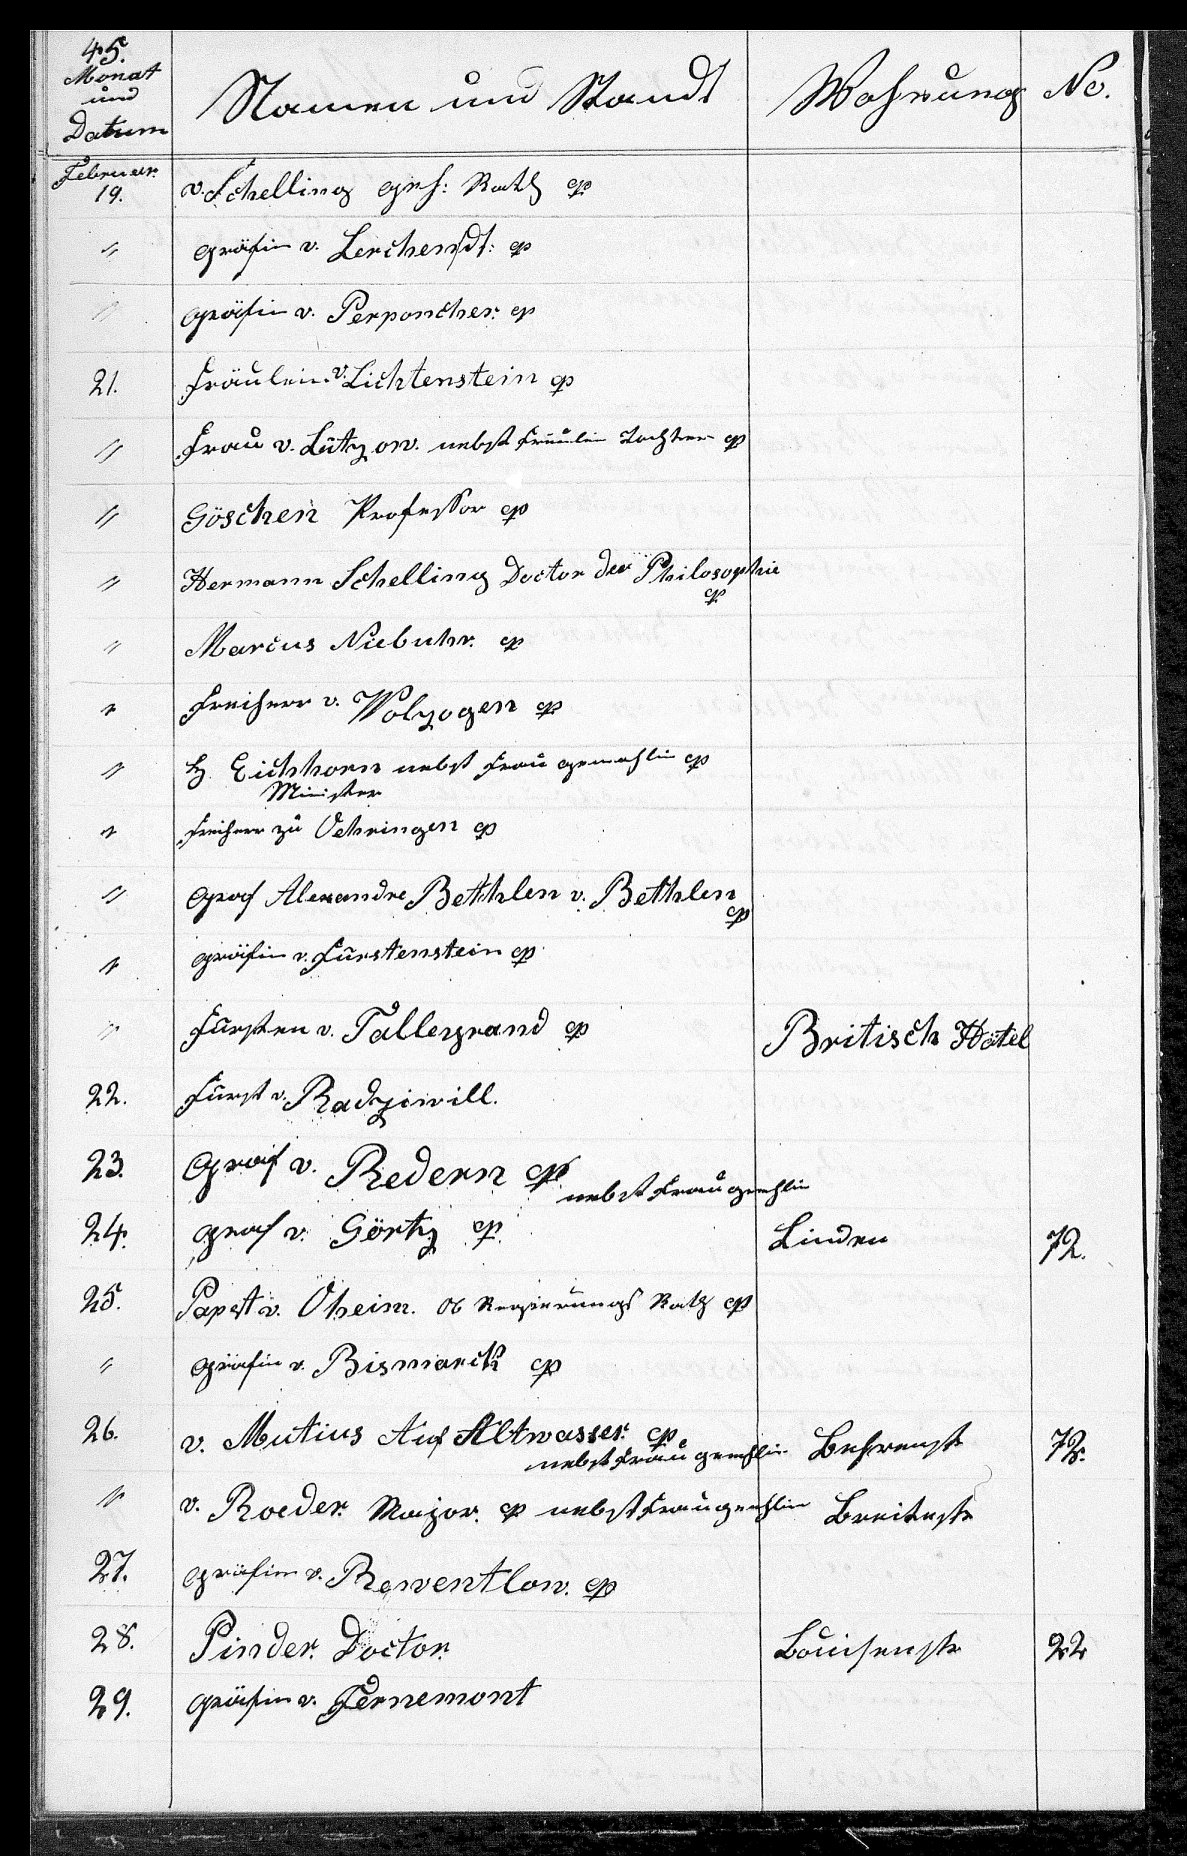 45.
Monat und Datum Namen und Standt Wohnung No.
Februar 19. v. Schelling geh: Rath cp
" gräfin v. Lerchenfdt: cp
" gräfin v. Perponcher. cp
21. Fräulein v. Lichtenstein cp
" Frau v. Lützow. nebst Fräulein Tochter cp
" Göschen Professor cp
" Hermann Schelling Doctor der Philosophie cp
" Marcus Niebuhr. cp
" Freiherr v. Wolzogen cp
" Eichhorn nebst Frau gemahlin cp
Minister
" Freiherr zu Oehringen cp
" Graf Alexandre Bethlen v. Bethlen cp
" gräfin v. Fürstenstein cp
" Fürsten v. Talleyrand cp Britisch Hôtel
22. Fürst v. Radziwill.
23. Graf v. Redern cp
nebst Frau gemhlin
24. graf v. Görtz cp. Linden 72.
25. Papst v. Oheim. Ob Regierungs Rath cp
" gräfin v. Bismarck cp
26. v. Mutius Auf Altwasser. cp
nebst Frau gemhlin Behrenst 72.
" v. Roeder. Major. cp nebst Frau gemhlin Breitestr
27. gräfin v. Rewentlow. cp
28. Pinder. Doctor. Louisenstr 22
29. gräfin v. Fernemont